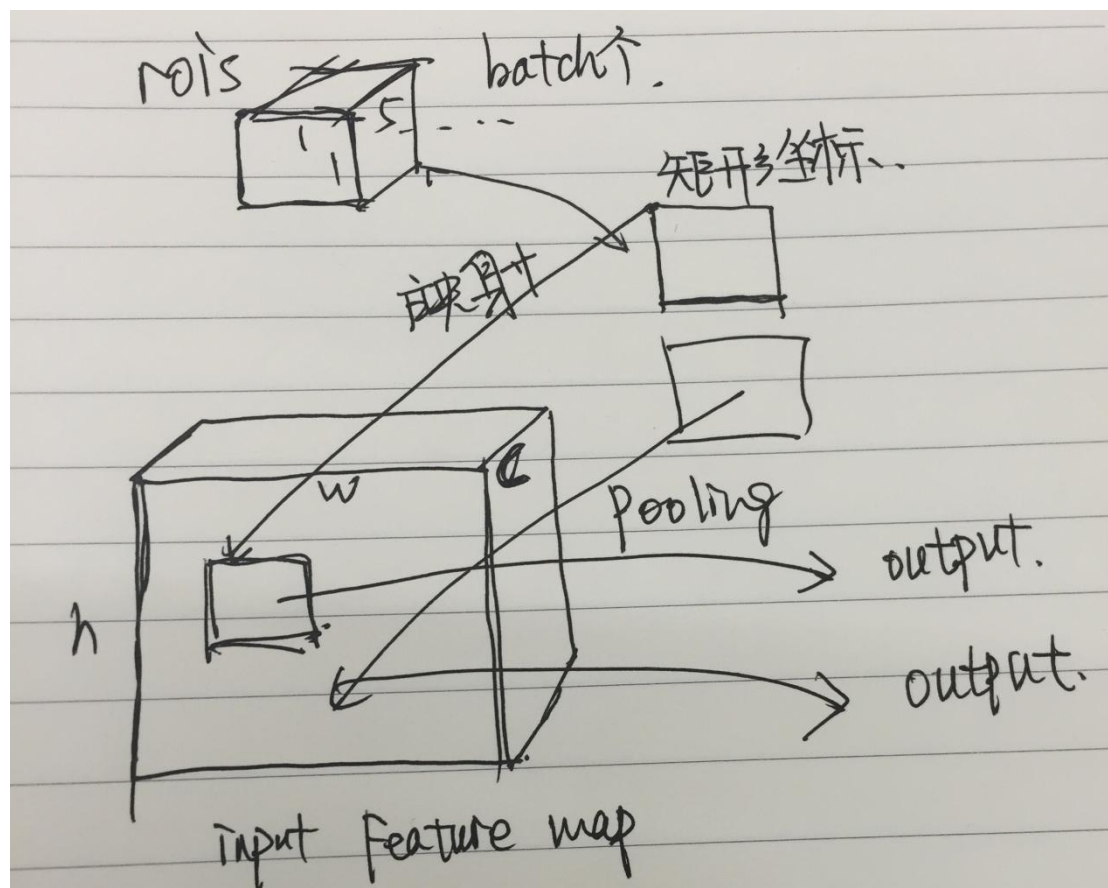 rois
batch个.
1
5
1
矩形坐标
映射
w
c
pooling
output.
h
output.
input Feature map